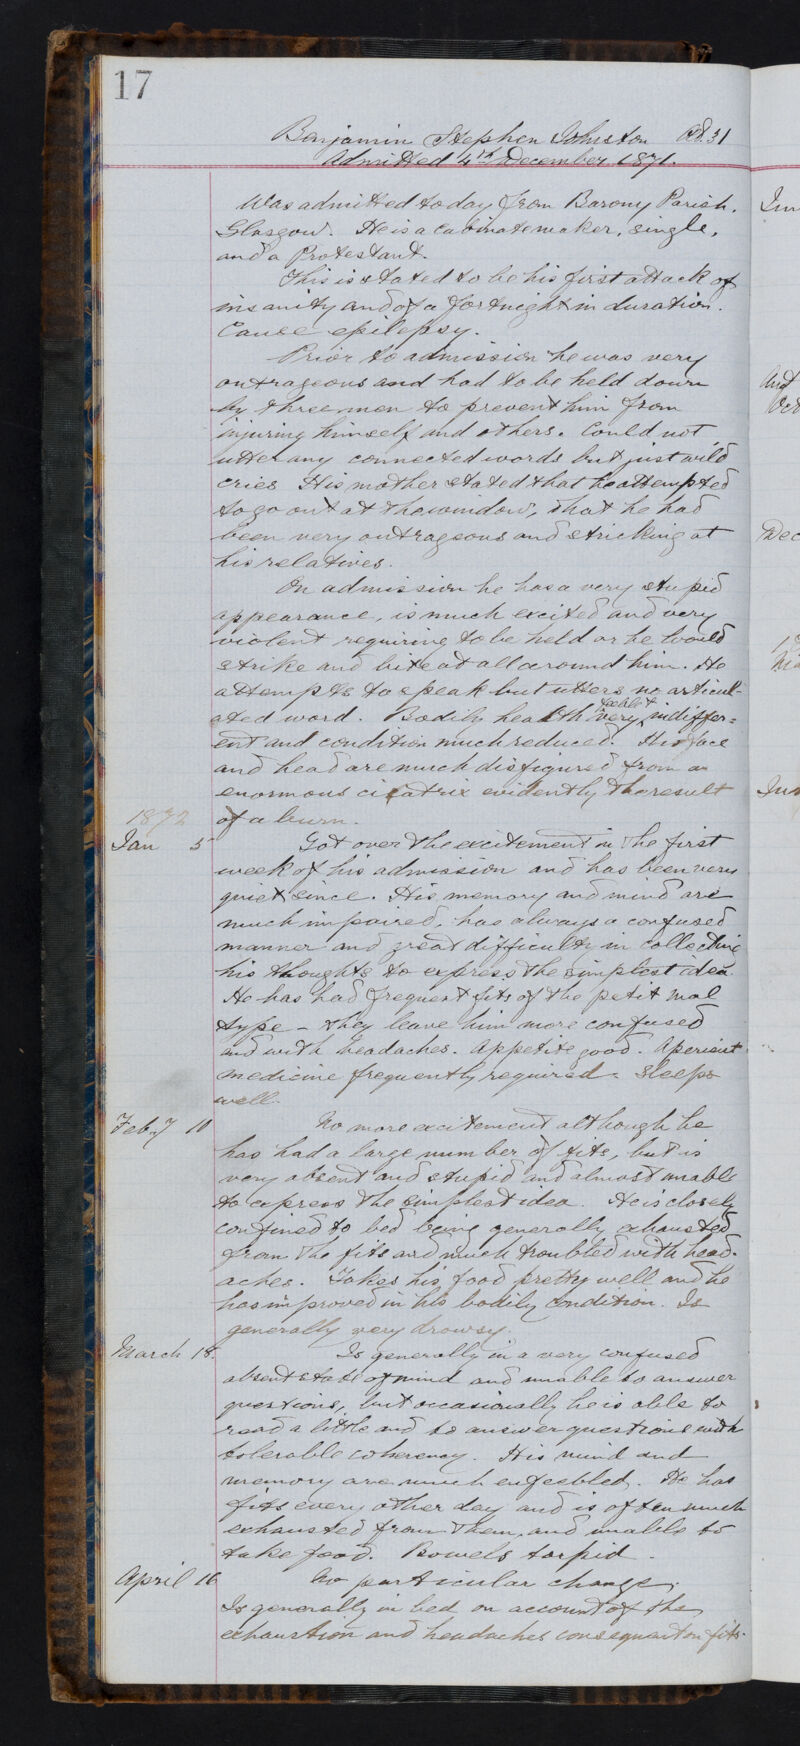 17
Benjamin Stephen Johnston Æt. 31
Admitted 4th December 1871.
Was admitted today from Barony Parish,
Glasgow. He is a Cabinatemaker, single,
and a Protestant.
This is stated to be his first attack of
insanity and of a fortnight in duration.
Cause epilepsy.
Prior to admission he was very
outrageous and had to be held down
by three men to prevent him from
injuring himself and others. Could not
utter any connected words but just wild
cries His mother stated that he attempted
to go out at the window, that he had
been very outrageous and stricking at
his relatives.
On admission he has a very stupid
appearance, is much excited and very
violent requiring to be held or he would
strike and bite at all around him. He
attempts to speak but utters no articul-
ated word. Bodily health feeble & very indiffer=
ent and condition much reduced. His face
and head are much disfigured from an
enormous cicatrix evidently the result
of a burn.
1872
Jan 5 Got over the excitement in the first
week of his admission and has been very
quiet since. His memory and mind are
much impaired, has always a confused
manner and great difficulty in collecting
his thoughts to express the simplest idea.
He has had frequent fits of the petit mal
type – they leave him more confused
and with headaches. Appetite good. Aperient
medicine frequently required – Sleeps
well.
Feby 10 No more excitement although he
has had a large number of fits, but is
very absent and stupid and almost unable
to express the simplest idea. He is closely
confined to bed being generally exhausted
from the fits and much troubled with head-
aches. Takes his food pretty well and he
has improved in his bodily condition. Is
generally very drowsy.
March 18. Is generally in a very confused
absent state of mind and unable to answer
questions, but occasionally he is able to
read a little and to answer questions with
tolerable coherency. His mind and
memory are much enfeebled. He has
fits every other day and is often much
exhausted from them, and unable to
take food. Bowels torpid.
April 16 No particular change.
Is generally in bed on account of the
exhaustion and headaches consequent on fits.
Dec